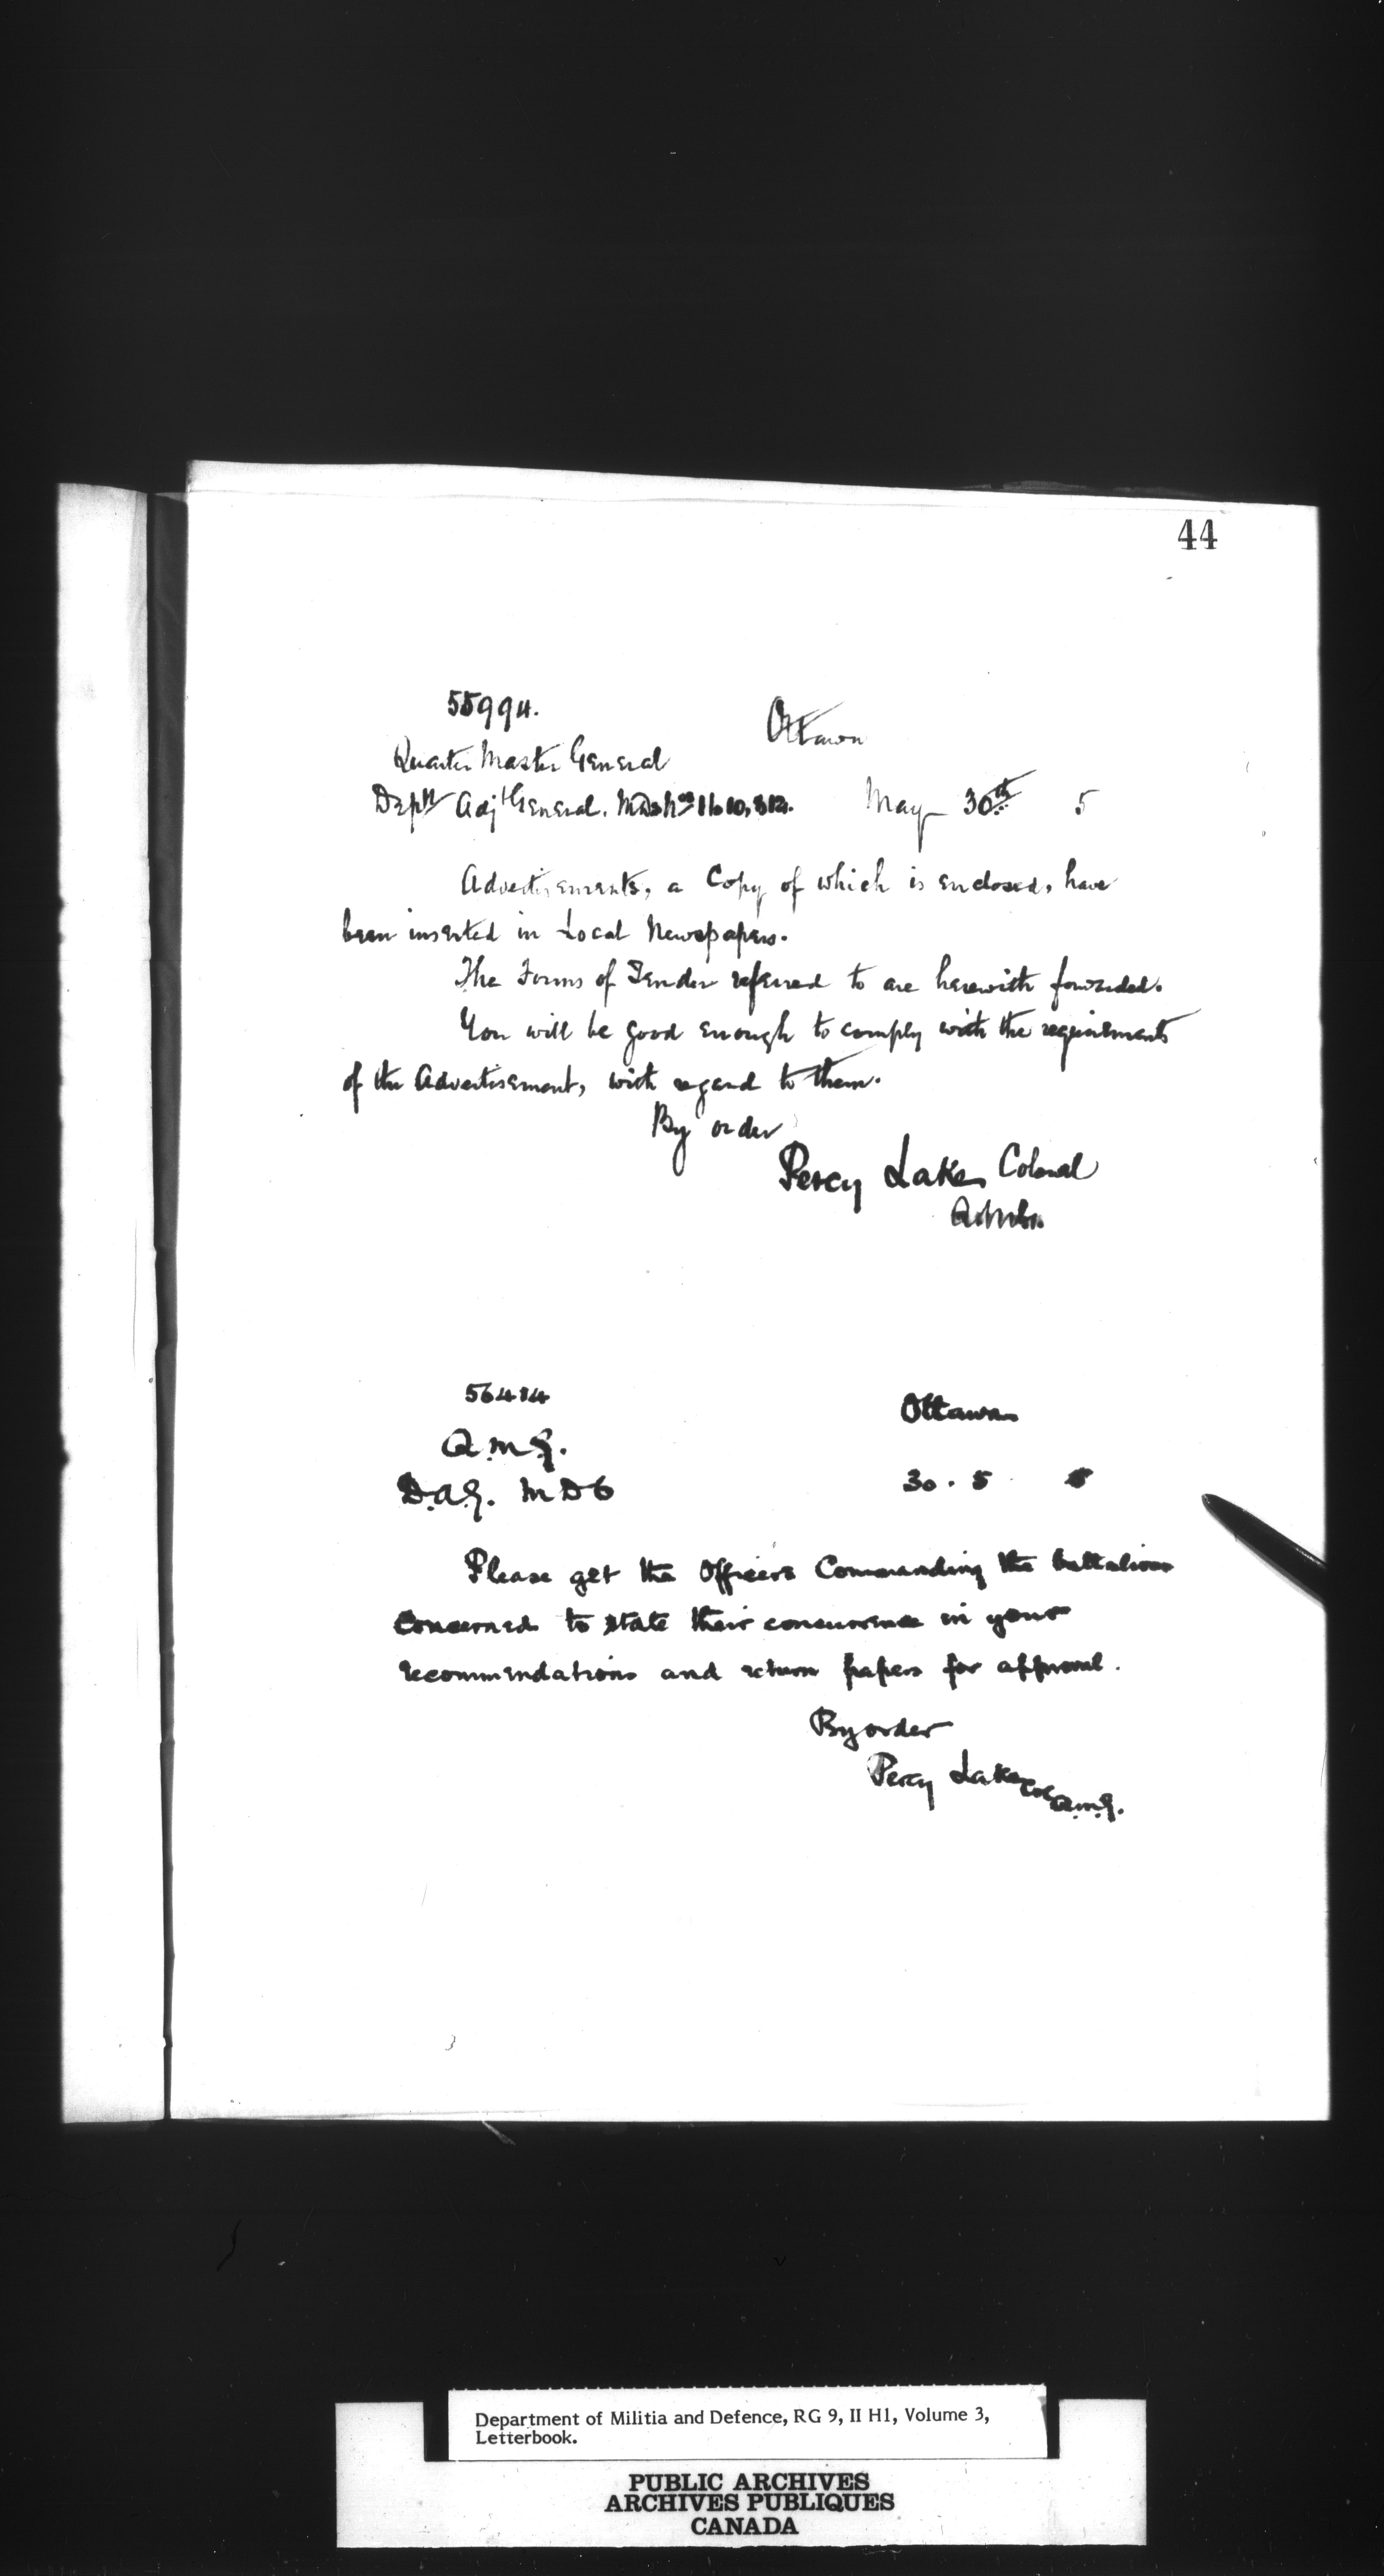 44
55994.
Ottawa
Quarter Master General
Depty Adjt General. M.Ds Nos 1 to 10, & 12.
May 30th 5
Advertisements, a Copy of which is enclosed, have
been inserted in Local Newspapers.
The Forms of Tender referred to are herewith forwarded.
You will be good enough to comply with the requirements
of the Advertisement, with regard to them.
By order
Percy Lake Colonel
56484
Ottawa
Q.M.G.
D.A.G. M D 6
30 . 5 5
Please get the Officers Commanding the battalions
concerned to state their concurrence in your
recommendations and return papers for approval.
By order
Percy Lake Col Q.M.G.
Department of Militia and Defence, RG 9, II H1, Volume 3,
Letterbook.
PUBLIC ARCHIVES
ARCHIVES PUBLIQUES
CANADA